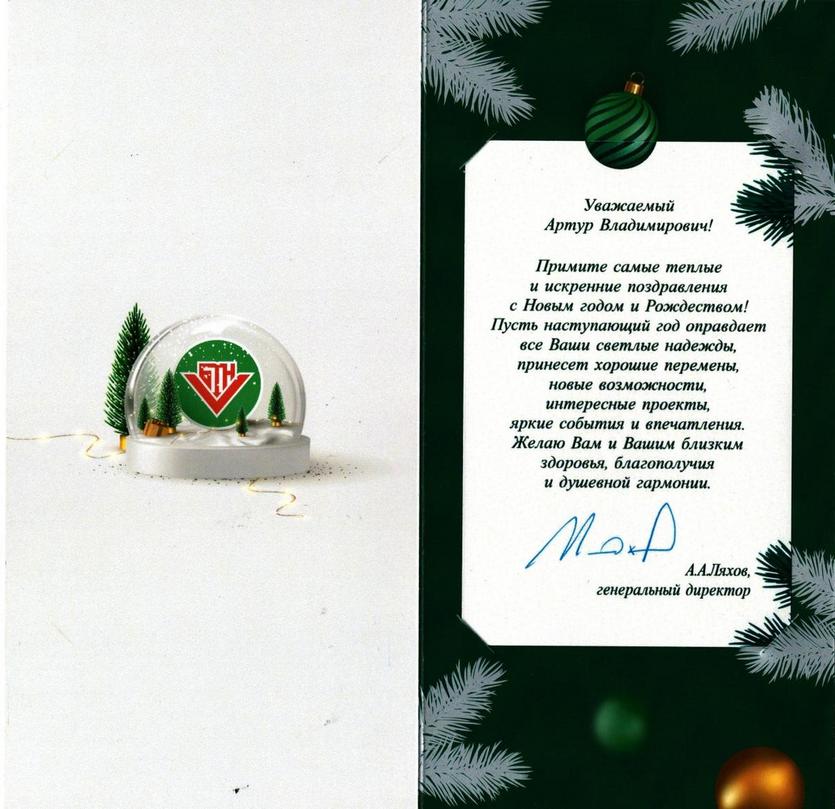 БТН
Уважаемый
Артур Владимирович!
Примите самые теплые
и искренние поздравления
с Новым годом и Рождеством!
Пусть наступающий год оправдает
все Ваши светлые надежды,
принесет хорошие перемены,
новые возможности,
интересные проекты,
яркие события и впечатления.
Желаю Вам и Вашим близким
здоровья, благополучия
и душевной гармонии.
А.А.Ляхов,
генеральный директор